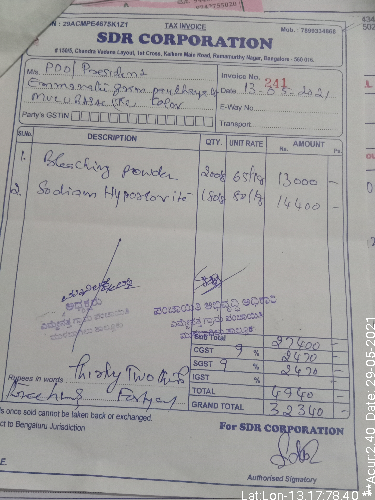 : 29ACMPE4675K1Z1
TAX INVOICE
Mob. : 7899334868
SDR CORPORATION
# 150/5, Chandra Vadana Layout, 1st Cross, Kalkere Main Road, Ramamurthy Nagar, Bangalore - 560 016.
M/s. PDO / President
Invoice No. 241
Date 13-05-2021
E-Way No.
Party's GSTIN
Transport
Sl.No. DESCRIPTION QTY. UNIT RATE AMOUNT
Rs. Ps.
1. Bleaching powder 200kg 65/kg 13000 -
2. Sodium 14400 -
ಅಧ್ಯಕ್ಷರು
ಪಂಚಾಯಿತಿ ಅಭಿವೃದ್ಧಿ ಅಧಿಕಾರಿ
Sub Total 27400 -
CGST 9 % 2470 -
SGST 9 % 2470 -
IGST %
Rupees in words Thirty Two
TOTAL 4940 -
GRAND TOTAL 32340 -
s once sold cannot be taken back or exchanged.
ct to Bengaluru Jurisdiction
For SDR CORPORATION
Authorised Signatory
Lat:Lon-13.17:78.40
**Acur:2.40 Date:29-05-2021